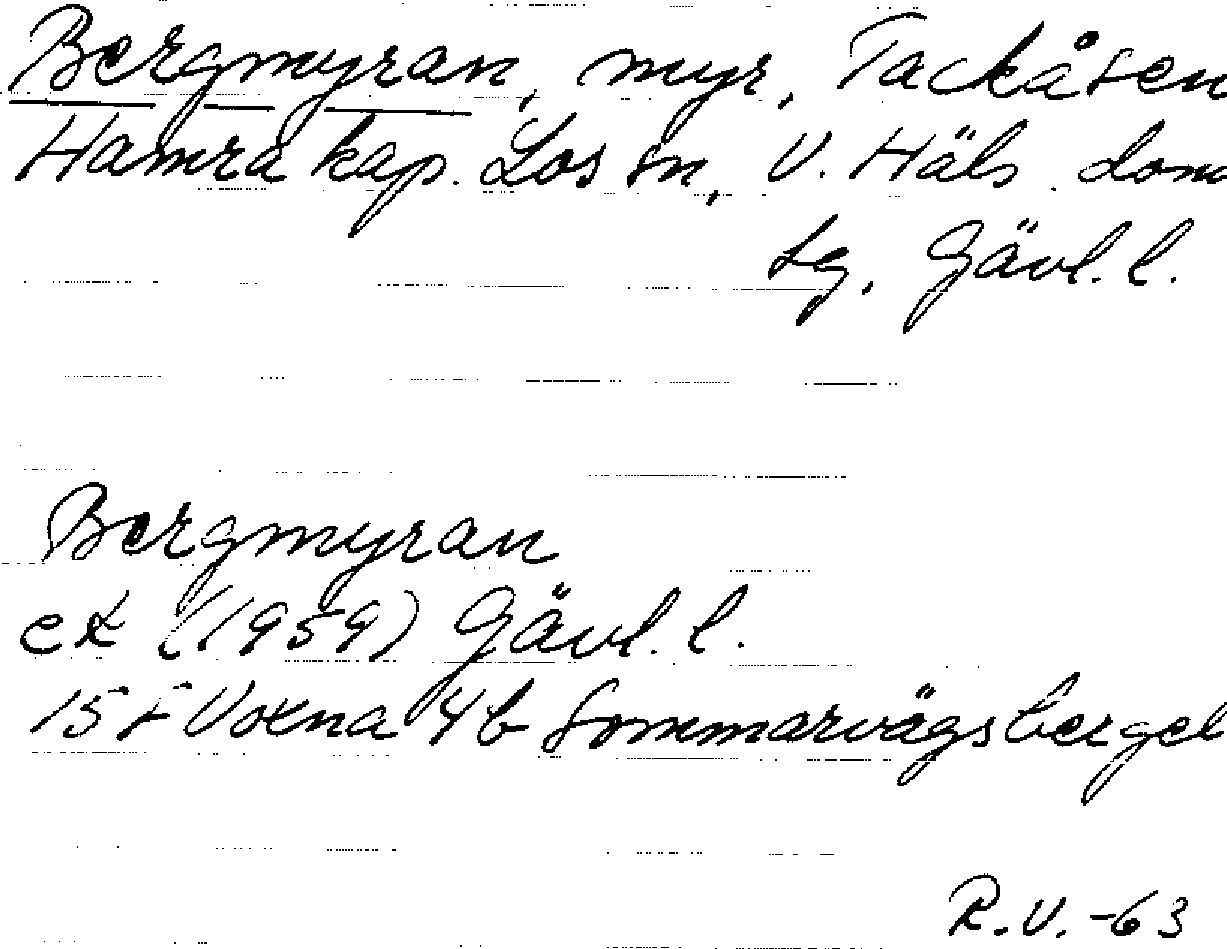 Bergmyran, myr, Tackåsen
Hamra kap. Los sn, V. Häls. doms
sg, Gävl. l.
Bergmyran
ek (1959) Gävl. l.
15 F Voxna 4b Sommarvägsberget
R.V. -63